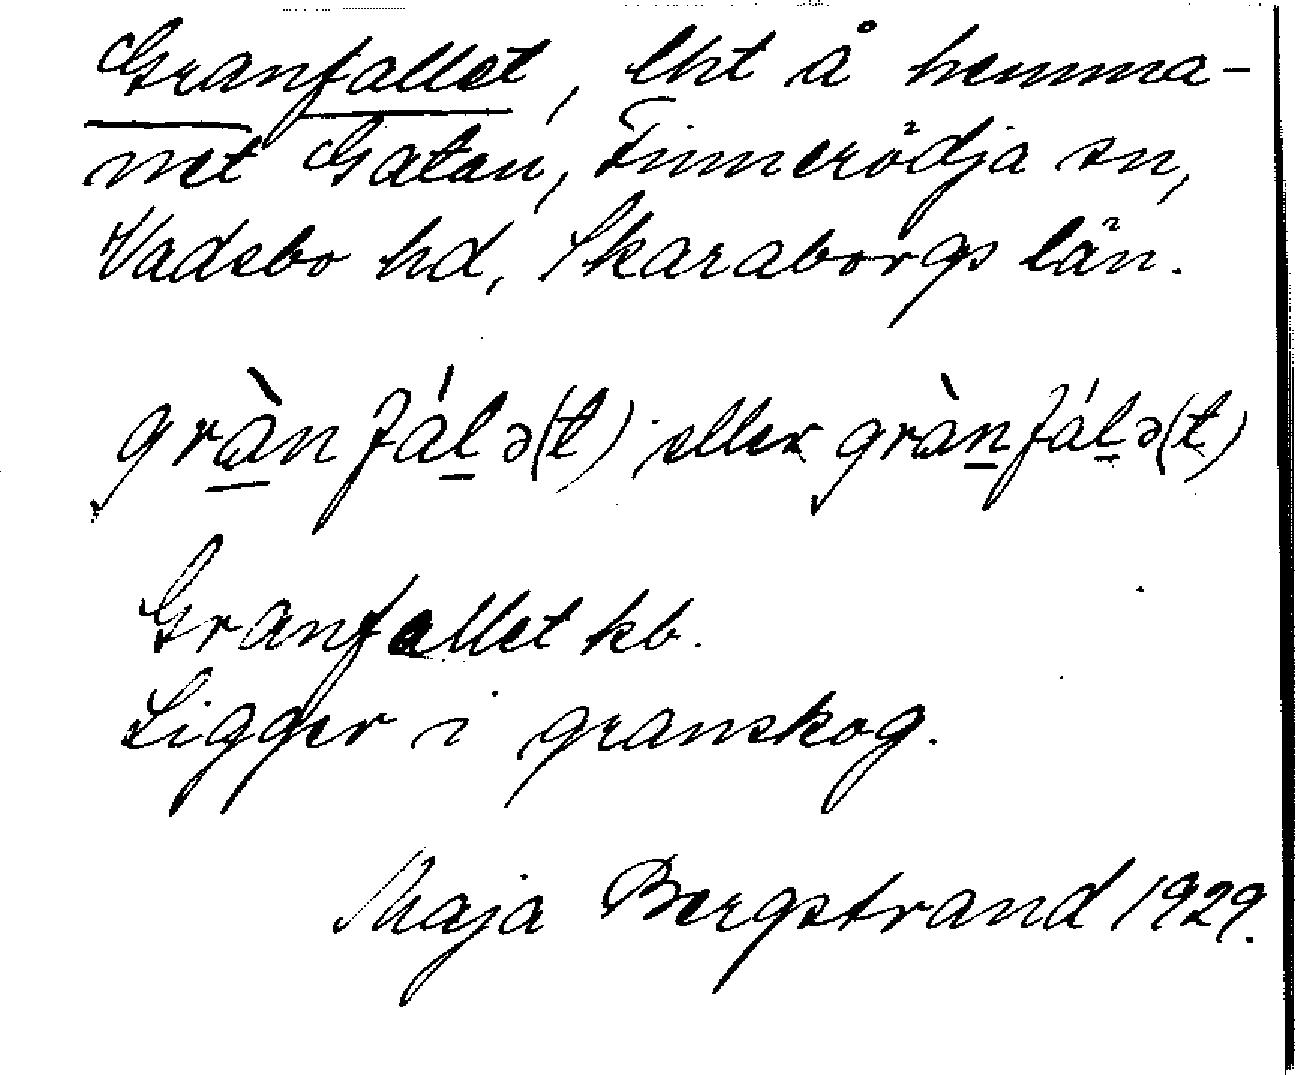 Granfallet, lht å hemma-
net Gatan, Finnerödja sn,
Vadsbo hd, Skaraborgs län.
grànfálə(t) eller grànfálə(t)
Granfallet kb.
Ligger i granskog.
Maja Bergstrand 1929.